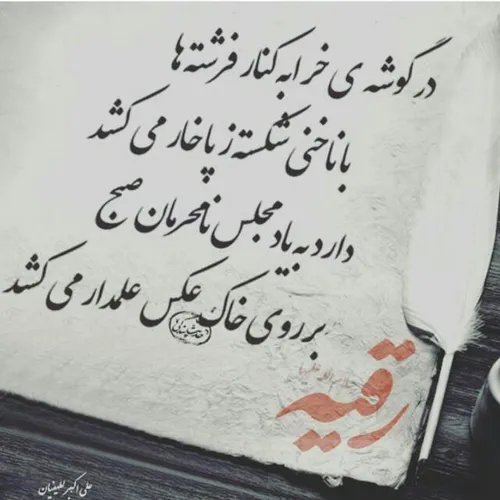 در گوشه ی خرابه کنار فرشته ها
با ناخنی شکسته ز پا خار می کشد
دارد به یاد مجلس نامحرمان صبح
بر روی خاک عکس علمدار می کشد
رقیه
سلام الله علیها
علی اکبر لطیفیان